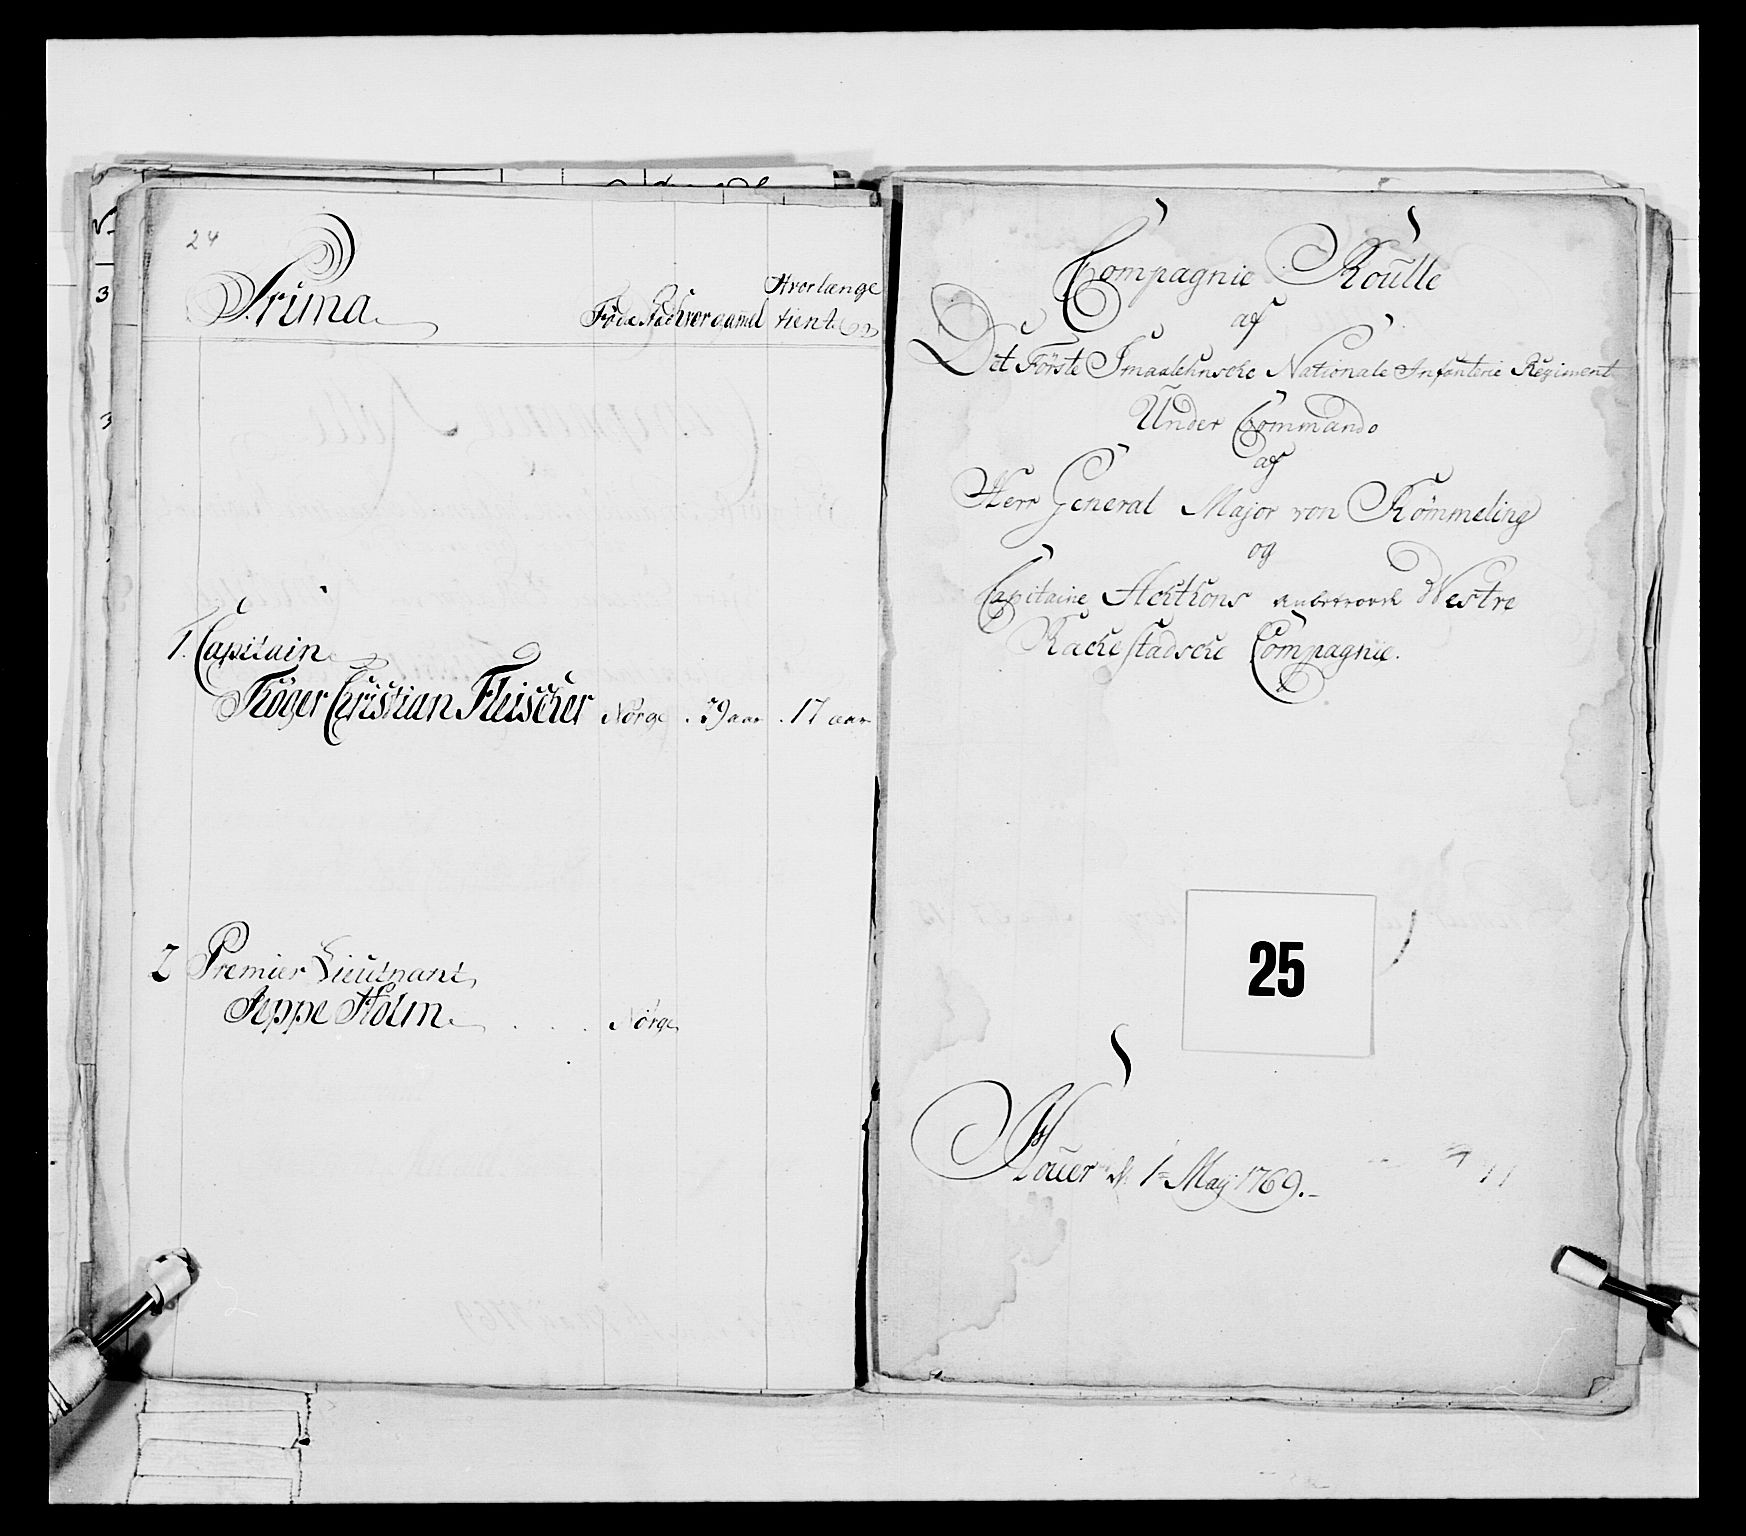 24
Prima
Föde Stæd
Hvor gamel
Hvorlænge
tient
1. Capitain
Röger Christian Fleischer Norge . 39 aar . 17 aar
2 Premier Lieutnant
Jeppe Holm . . . Norge
Compagnie Roulle
af
Det Förste Smaalehnsche Nationale Infanterie Regiment
Under Commando
af
Herr General Major von Römmeling
og
Capitaine anbetroede Westre
Rackestadsche Compagnie.
25
1 May 1769.